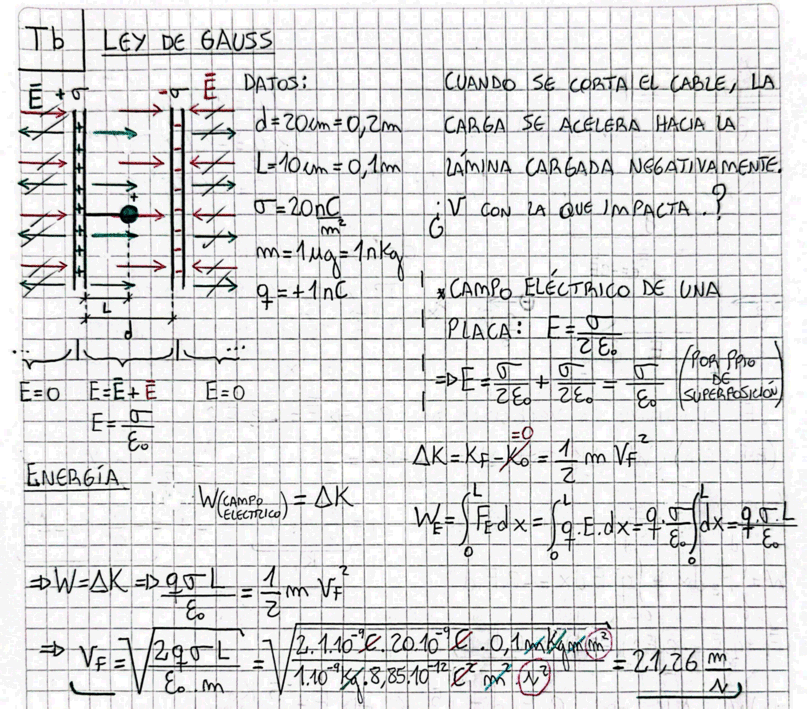 Tb LEY DE GAUSS
E̅ +σ -σ E̅
DATOS:
d=20cm=0,2m
L=10cm=0,1m
σ=20nC/m²
m=1μg=1nKg
q=+1nC
L
d
CUANDO SE CORTA EL CABLE, LA
CARGA SE ACELERA HACIA LA
LÁMINA CARGADA NEGATIVAMENTE.
¿V CON LA QUE IMPACTA.?
*CAMPO ELÉCTRICO DE UNA
PLACA: E=σ/2ε₀
⇒E=σ/2ε₀+σ/2ε₀=σ/ε₀ (POR PPIO DE SUPERPOSICIÓN)
... ...
E=0 E=E̅+E̅ E=0
E=σ/ε₀
ENERGÍA
W(CAMPO ELECTRICO)=ΔK
ΔK=K_F-K₀=1/2 m V_F²
=0
W_E=∫₀ᴸF_E dx=∫₀ᴸq.E.dx=q.σ/ε₀∫₀ᴸdx=q.σ.L/ε₀
⇒W=ΔK⇒qσL/ε₀=1/2 m V_F²
⇒V_F=√(2qσL/ε₀.m)=√(2.1.10⁻⁹C.20.10⁻⁹C.0,1m Kg m m²/1.10⁻⁹Kg.8,85.10⁻¹²C² m² s²)=21,26 m/s